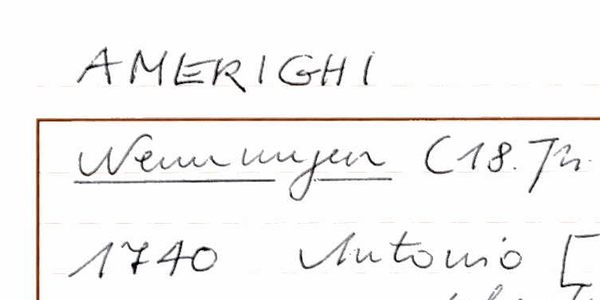 AMERIGHI
Nennungen (18. Jh.
1740 Antonio [